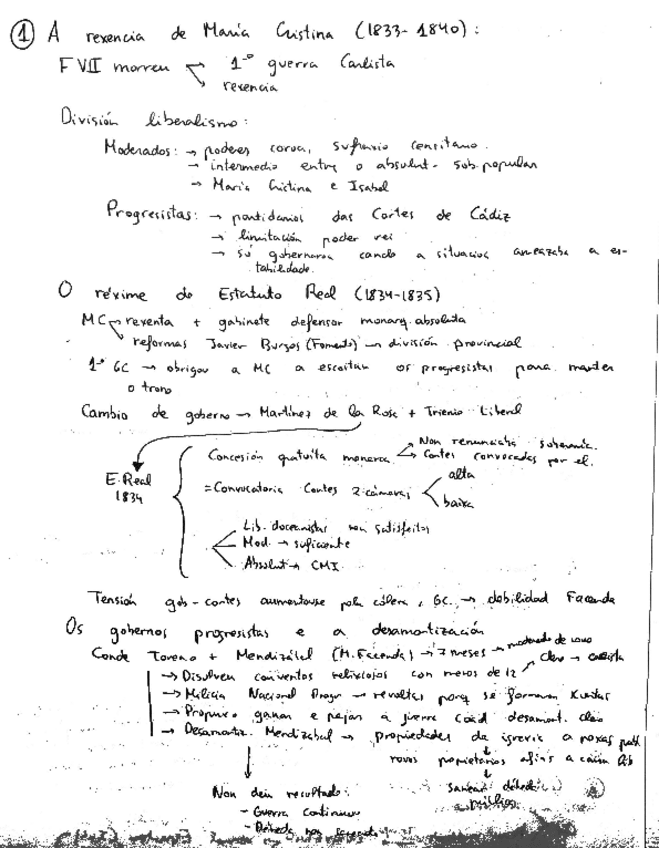 ① A rexencia de María Cristina (1833-1840):
F VII morreu → 1ª guerra Carlista
→ rexencia
División liberalismo:
Moderados: → poderes coroa, sufraxio censitario.
→ intermedio entre o absolut - sob. popular
→ María Cristina e Isabel
Progresistas: → partidarios das Cortes de Cádiz
→ limitación poder rei
→ só gobernaron cando a situación ameazaba a es-
tabilidade.
O réxime do Estatuto Real (1834-1835)
MC → rexenta + gabinete defensor monarq. absoluta
reformas Javier Burgos (Fomento) → división provincial
1ª GC → obrigou a MC a escoitar os progresistas para manter
o trono
Cambio de goberno → Martínez de la Rosa + Trienio Liberal
E. Real
1834
Concesión gratuita monarca → Non renunciaba soberanía.
→ Cortes convocadas por el.
= Convocatoria Cortes 2 cámaras < alta
baixa
Lib. doceanistas non satisfeitos
Mod. → suficiente
Absolut → CMI
Tensión gob-cortes aumentouse pola cólera, GC → debilidad Facenda
Os gobernos progresistas e a desamortización
Conde Toreno + Mendizábal (M. Facenda) → 7 meses →
→ Disolven conventos relixiosos con menos de 12 → clero → carlista
→ Milicia Nacional Progr → revoltas porq se forman Xuntas
→ Propuxo ganar e pagar a guerra desamort. clero
→ Desamortiz. Mendizabal → propiedades da igrexia a
novos propietarios afíns a causa lib
Non deu resultado:
sanear débeda
pública
- Guerra continuou
- Débeda non saneada